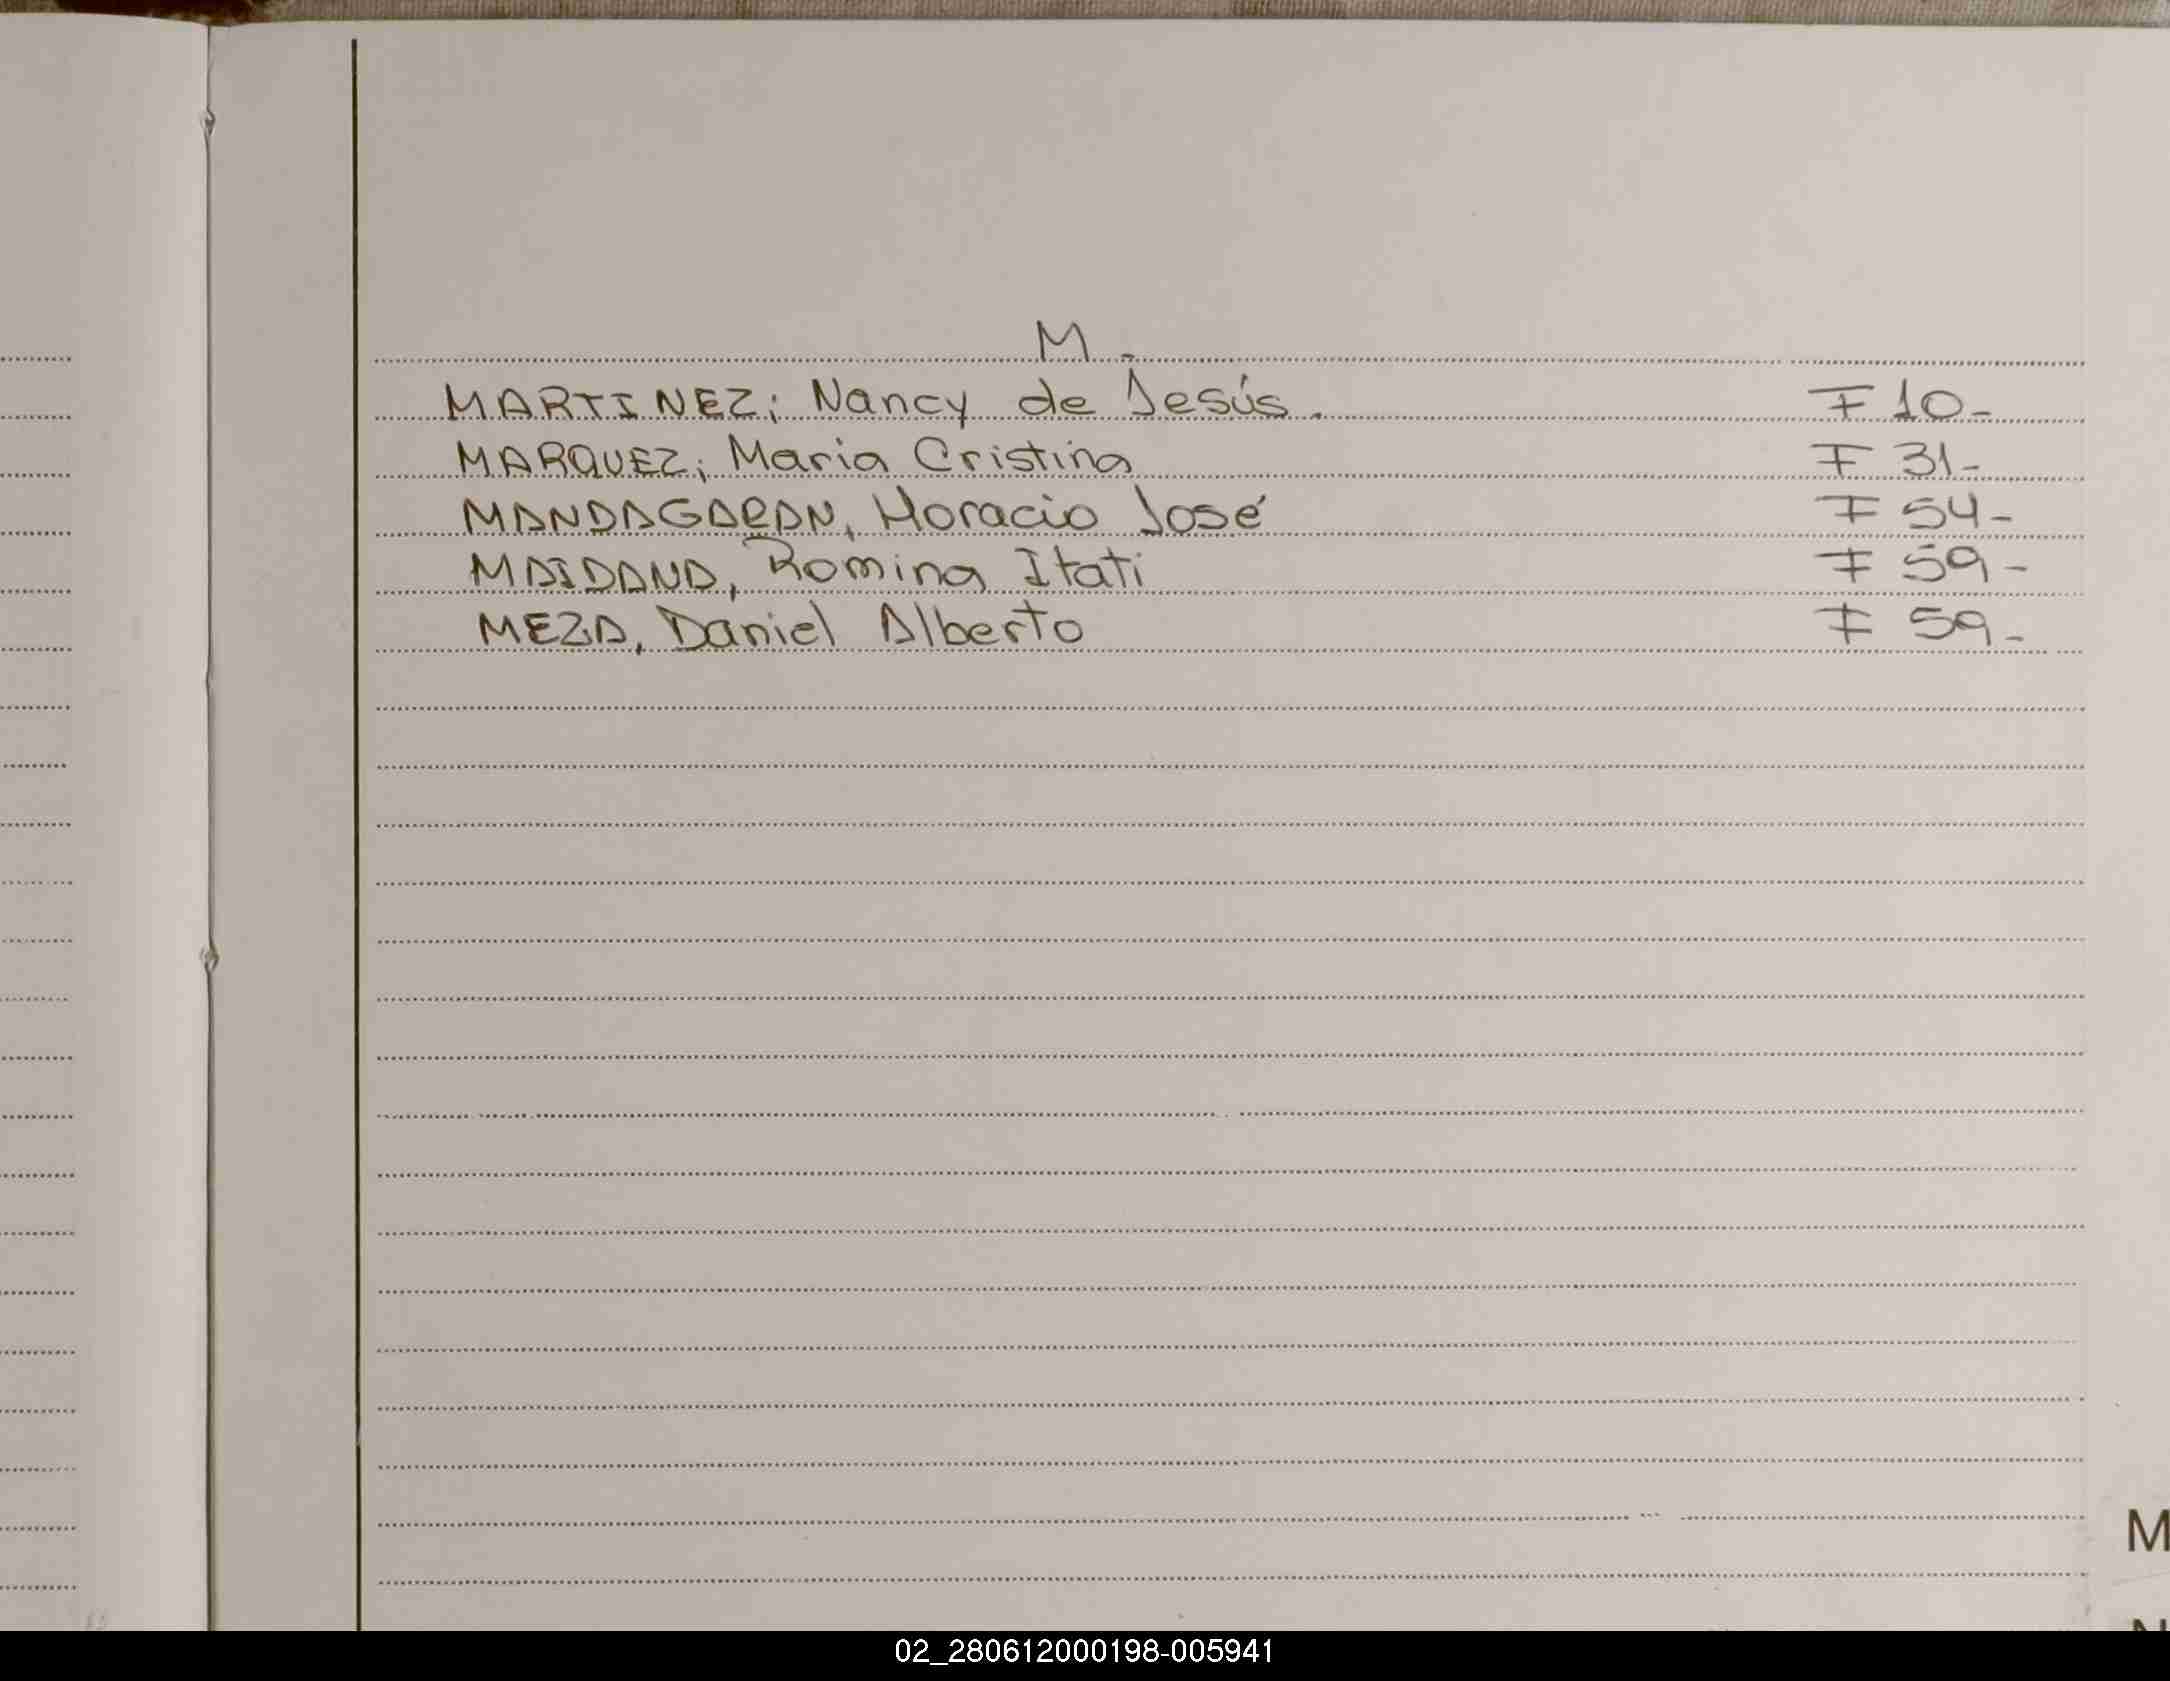 M -
MARTINEZ; Nancy de Jesús. F 10-
MARQUEZ; Maria Cristina F 31-
MANDAGARAN, Horacio José F 54-
MAIDANA, Romina Itati F 59-
MEZA, Daniel Alberto F 59-
M
02_280612000198-005941